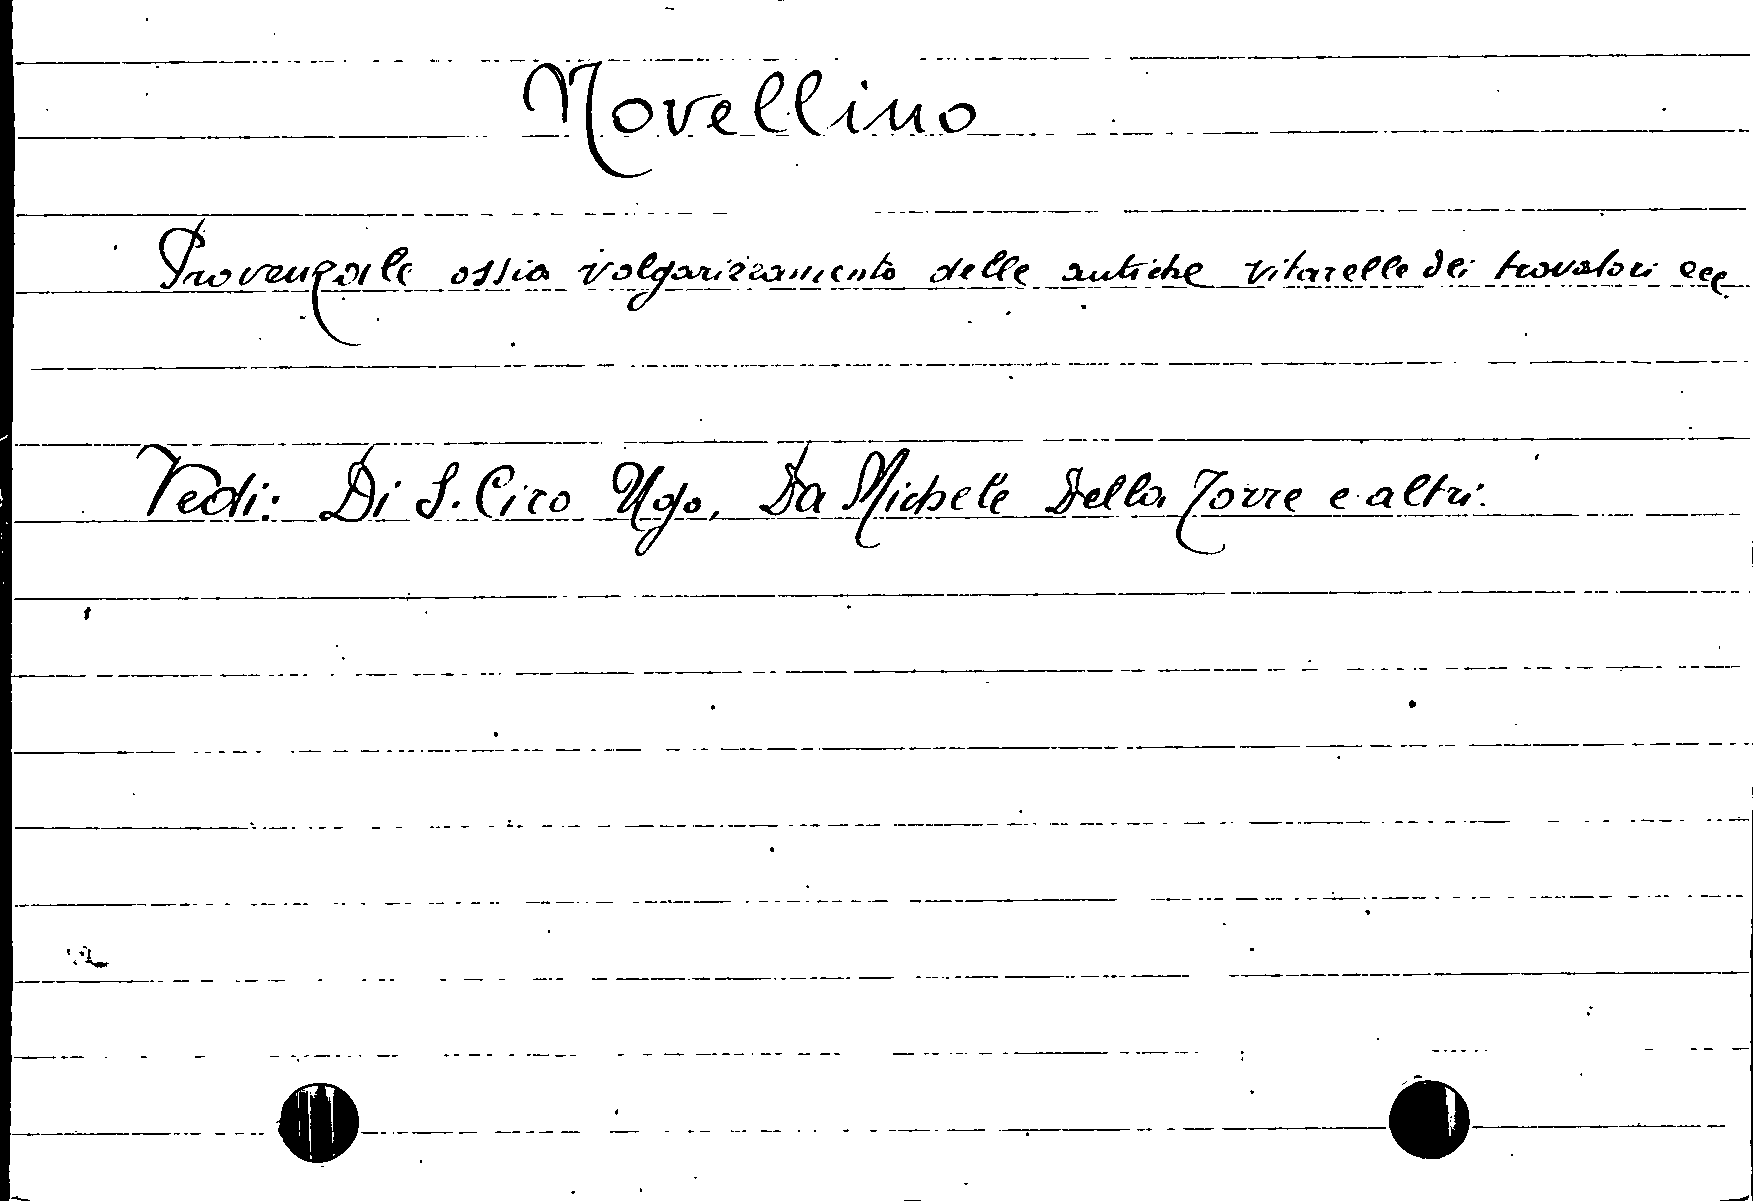 Novellino
Provenzale ossia volgarizzamento delle antiche vitarelle dei trovatori ecc
Vedi: Di S. Ciro Ugo, Da Michele Della Torre e altri.